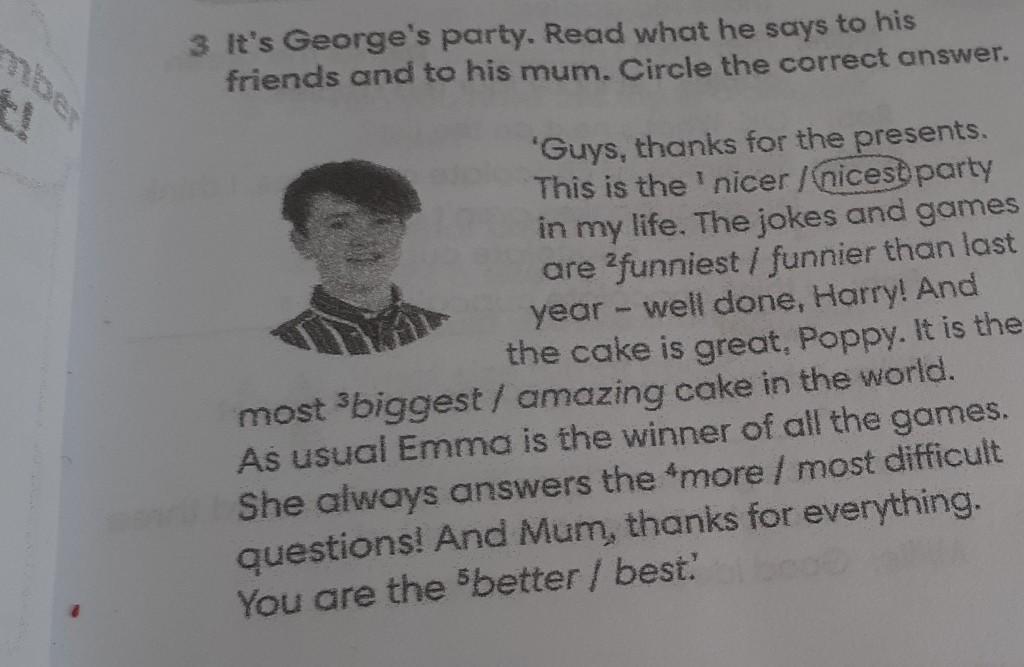 mber
t!
3 It's George's party. Read what he says to his
friends and to his mum. Circle the correct answer.
'Guys, thanks for the presents.
This is the ¹ nicer / nicest party
in my life. The jokes and games
are ²funniest / funnier than last
year – well done, Harry! And
the cake is great, Poppy. It is the
most ³biggest / amazing cake in the world.
As usual Emma is the winner of all the games.
She always answers the ⁴more / most difficult
questions! And Mum, thanks for everything.
You are the ⁵better / best.'